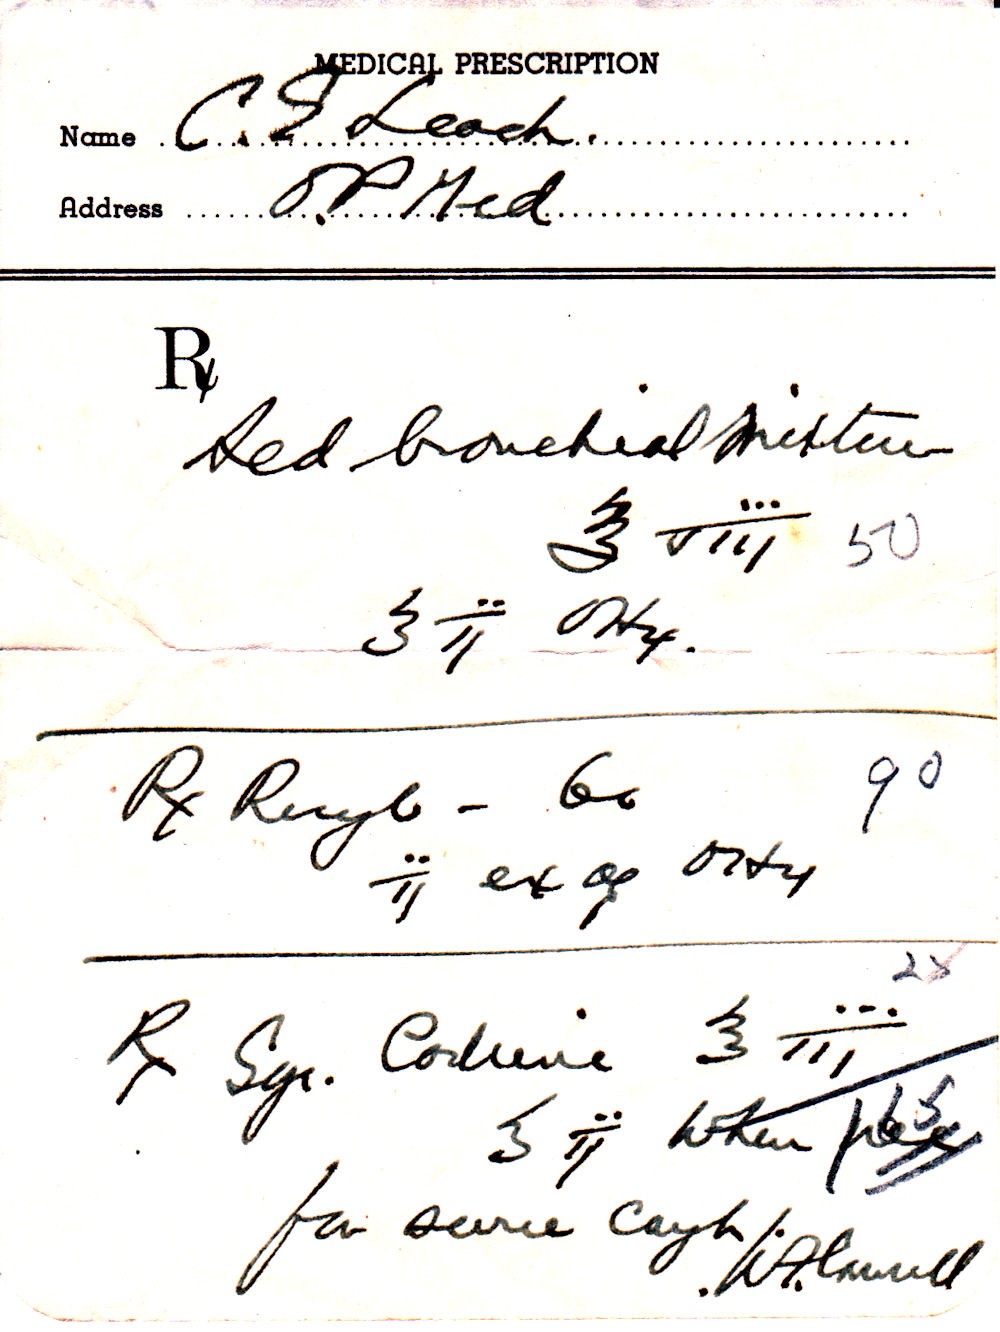 MEDICAL PRESCRIPTION
Name C. Leach.
Address O.P Med
℞
Sed bronchial Mixture
℥ viii 50
ʒ ii
Rx - 60 90
ii ex aq
Rx Syr. Codeine ℥ iii
ʒ ii when
for severe cough.